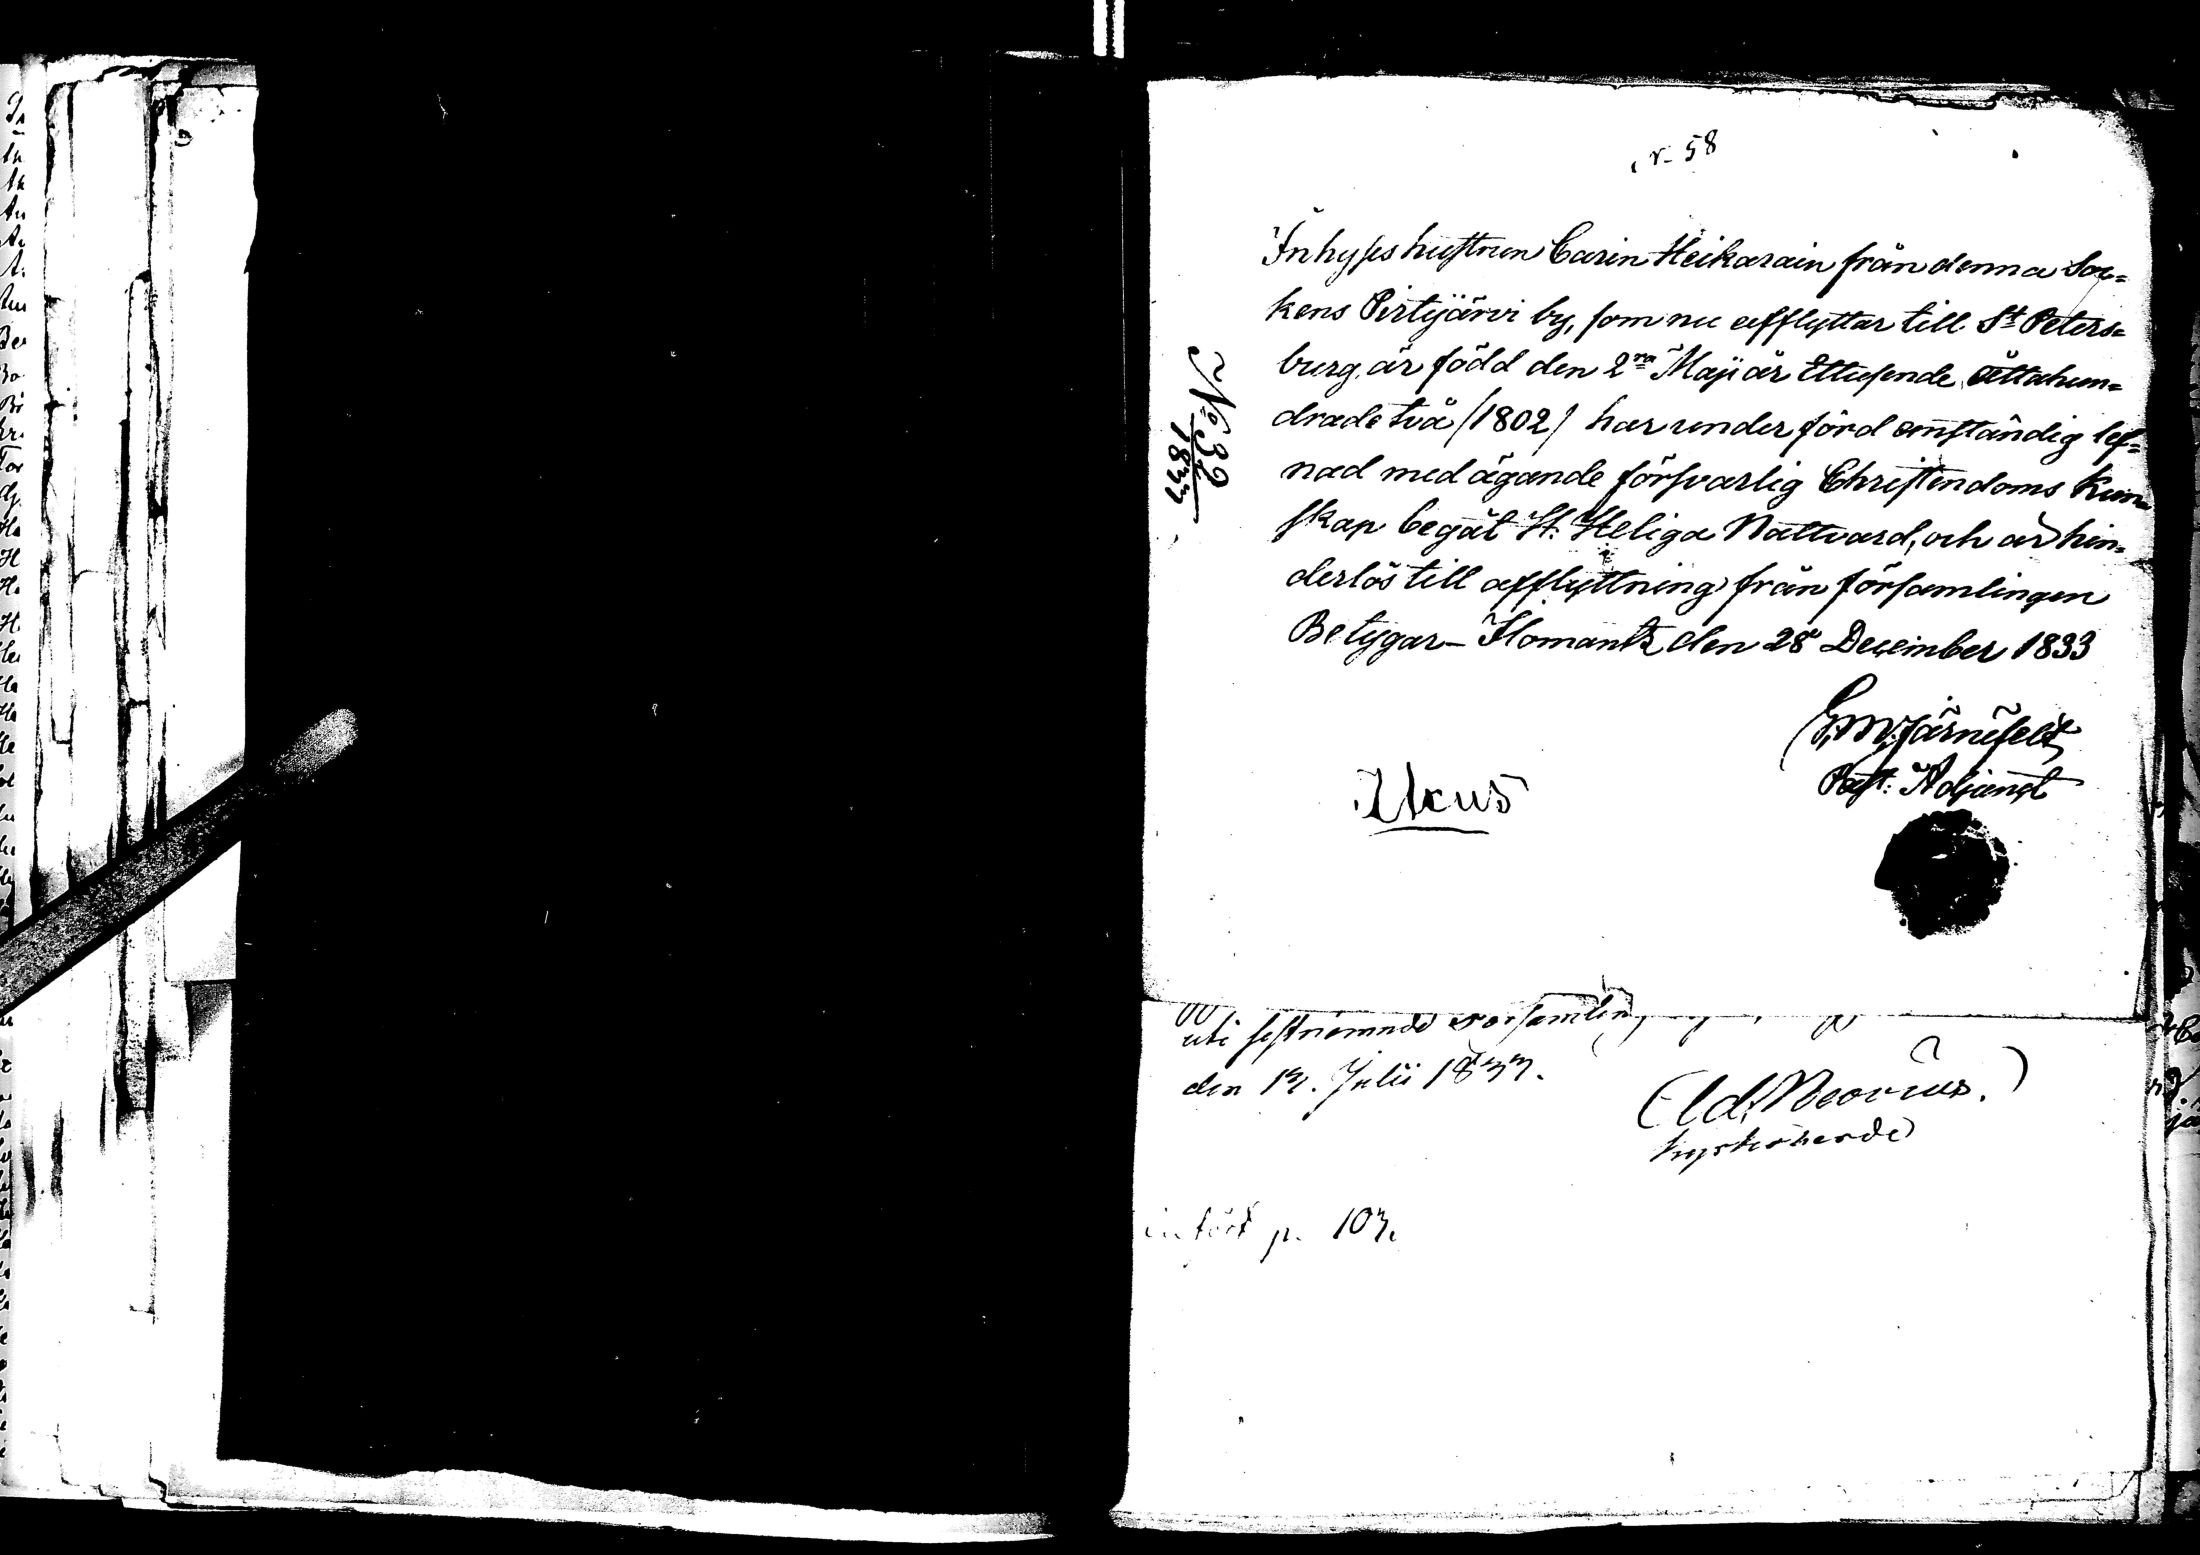 58
Inhyses hustrun Carin Heikarain från denna Soc=
kens Pirtijärvi by, som nu afflyttar till St Peters=
burg, är född den 2ra Maji år Ettusende åttahun=
dradetvå /1802/ har under förd anständig lef=
nad med ägande försvarlig Christendoms Kun=
skap begåt H. Heliga Nattvard, och är hin=
derlös till afflyttning från församlingen
Betygar_ Ilomants den 28 December 1833
G. W. Järnefelt
Past: Adjunct
No 32
1833
uti sistnämnde
den 13. Julii 1833.
Eld. Neovius.
kyrkoherde
infört p. 103.